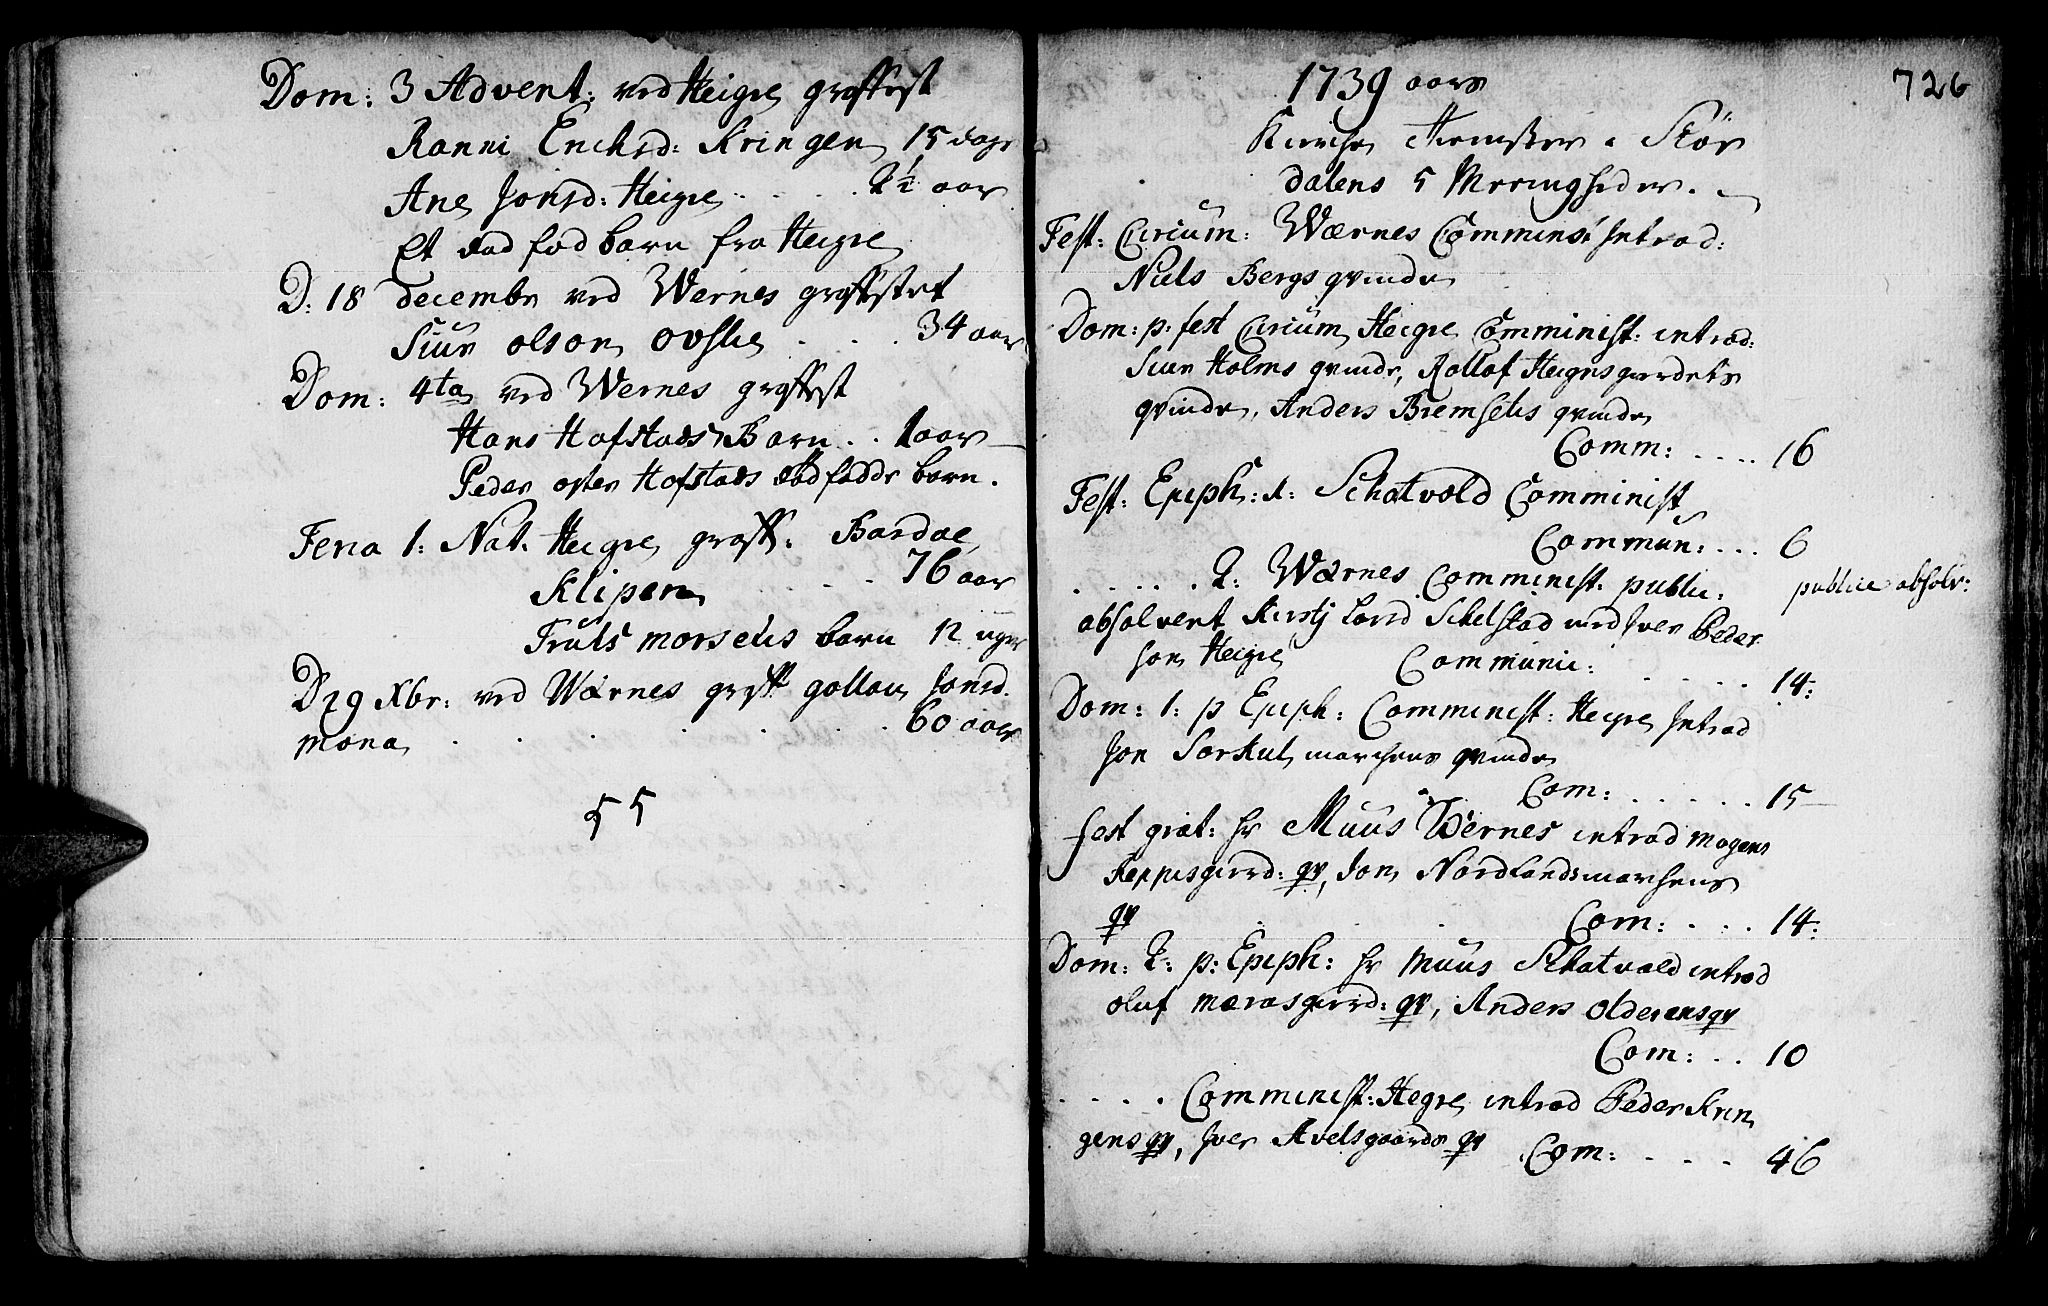 Dom: 3 Advent: ved Heigre graffest
Ranni Erichsd: Kringen 15 dage
Ane Jonsd: Heigre . . . 2½ aar
Et død fød barn fra Heigre
D: 18 decembr ved Wernes graffestet
Siur olson ovslie . . . 34 aar
Dom: 4ta ved Wernes graffest
Hans Hofstads Barn . . 1 aar
Peder øster Hofstads død fødde barn.
Feria 1: Nat. Heigre graff. Bardoe
Klipen . . . 76 aar
Truls morsetis barn 12 uger
D 29 Xbr: ved Wærnes graff gollou Jonsd.
mona . . . . . . 60 aar
55
1739 aars
726
Kirche Tienister i Stør
dalens 5 Meenigheder.
Fest: Circum: Wærnes Comminst Introd:
Niels Bergs qvinde
Dom: p: fest Circum Heigre Comminist: introd:
Siur Holms qvinde, Rollof Heigresgierdets
qvinde, Anders Bremsetis qvinde
Comm: . . . . 16
Fest: Epiph: 1: Schatvold Comminist
Commun: . . . 6
. . . . . 2: Wærnes Comminist. public.
publice absolv:
absolvent Kirstj Larsd Schelstad med Iver Peder
son Heigre Communic: . . . . . 14:
Dom: 1: p Epiph: Comminist: Heigre Introd
Jon Sorkul marchens qvinde
Com: . . . . . 15
fest grat: hr Muus Wernes introd Mogens
Reppisgierd: qv, Jon Nordlandsmarchens
qv . . . Com: . . . . 14:
Dom: 2: p: Epiph: hr Muus Schatvold introd
oluf mærasgierd: qv, Anders Olderens qv
Com: . . 10
. . . . Comminist: Hegre introd Peder Krin
gens qv, Iver Avelsgaards qv Com: . . . . 46